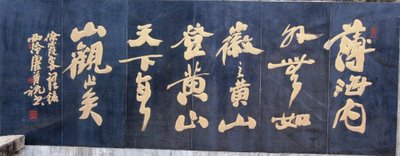 薄海内
外無如
徽之黄山
登黄山
天下無
山觀止矣
徐霞客
西泠